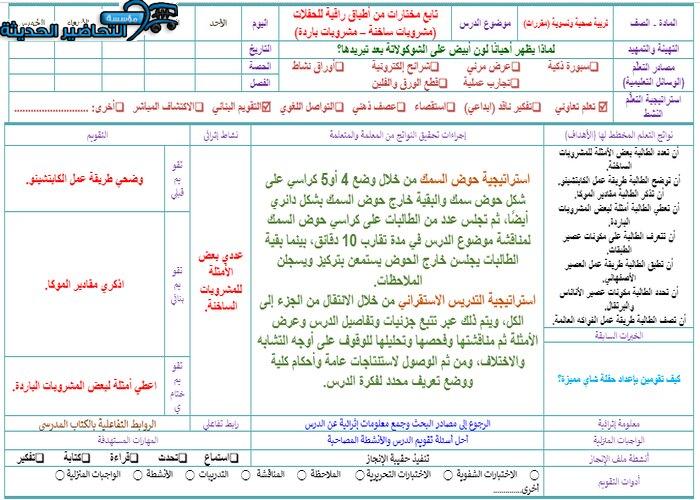 المادة - الصف
تربية صحية ونسوية (مقررات)
موضوع الدرس
تابع مختارات من أطباق راقية للحفلات
(مشروبات ساخنة – مشروبات باردة)
اليوم
الأحد
الأربعاء
الخميس
مؤسسة
التحاضير الحديثة
التهيئة والتمهيد
لماذا يظهر أحيانًا لون أبيض على الشوكولاتة بعد تبريدها؟
التاريخ
مصادر التعلم
(الوسائل التعليمية)
❑سبورة ذكية ❑عرض مرئي ❑شرائح إلكترونية ❑أوراق نشاط
❑تجارب عملية ❑قطع الورق والفلين
الحصة
الفصل
استراتيجية التعلم
النشط
☑تعلم تعاوني ❑تفكير ناقد (ابداعي) ❑استقصاء ❑عصف ذهني ❑التواصل اللغوي ☑التقويم البنائي ❑الاكتشاف المباشر ❑أخرى: ........................
نواتج التعلم المخطط لها (الأهداف)
إجراءات تحقيق النواتج من المعلمة والمتعلمة
نشاط إثرائي
التقويم
أن تعدد الطالبة بعض الأمثلة للمشروبات
الساخنة.
أن توضح الطالبة طريقة عمل الكابتشينو.
أن تذكر الطالبة مقادير الموكا.
أن تعطي الطالبة أمثلة لبعض المشروبات
الباردة.
أن تتعرف الطالبة على مكونات عصير
الطبقات.
أن تطبق الطالبة طريقة عمل العصير
الأصفهاني.
أن تحدد الطالبة مكونات عصير الأناناس
والبرتقال.
أن تصف الطالبة طريقة عمل الفواكه العائمة.
الخبرات السابقة
كيف تقومين بإعداد حفلة شاي مميزة؟
استراتيجية حوض السمك من خلال وضع 4 أو5 كراسي على
شكل حوض سمك والبقية خارج حوض السمك بشكل دائري
أيضًا، ثم تجلس عدد من الطالبات على كراسي حوض السمك
لمناقشة موضوع الدرس في مدة تقارب 10 دقائق، بينما بقية
الطالبات يجلسن خارج الحوض يستمعن بتركيز ويسجلن
الملاحظات.
استراتيجية التدريس الاستقرائي من خلال الانتقال من الجزء إلى
الكل، ويتم ذلك عبر تتبع جزئيات وتفاصيل الدرس وعرض
الأمثلة ثم مناقشتها وفحصها وتحليلها للوقوف على أوجه التشابه
والاختلاف، ومن ثم الوصول لاستنتاجات عامة وأحكام كلية
ووضع تعريف محدد لفكرة الدرس.
عددي بعض
الأمثلة
للمشروبات
الساخنة.
تقو
يم
قبلي
وضحي طريقة عمل الكابتشينو.
تقو
يم
بنائي
اذكري مقادير الموكا.
تقو
يم
ختام
ي
اعطي أمثلة لبعض المشروبات الباردة.
معلومة إثرائية
الرجوع إلى مصادر البحث وجمع معلومات إثرائية عن الدرس
رابط تفاعلي
الروابط التفاعلية بالكتاب المدرسي
الواجبات المنزلية
أحل أسئلة تقويم الدرس والأنشطة المصاحبة
المهارات المستهدفة
أنشطة ملف الإنجاز
تنفيذ حقيبة الإنجاز
❑استماع ❑تحدث ❑قراءة ❑كتابة ❑تفكير
أدوات التقويم
○ الاختبارات الشفوية ○ الاختبارات التحريرية ○ الملاحظة ○ المناقشة ○ التدريبات ○ الأنشطة ○ الواجبات المنزلية ○
أخرى..............